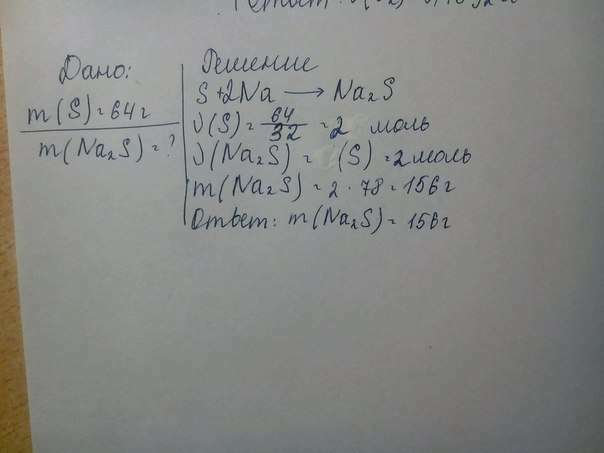 Дано:
m(S)=64г
m(Na₂S)=?
Решение
S+2Na → Na₂S
ν(S)=64/32=2 моль
ν(Na₂S)= (S)=2моль
m(Na₂S)=2·78=156г
Ответ: m(Na₂S)=156г